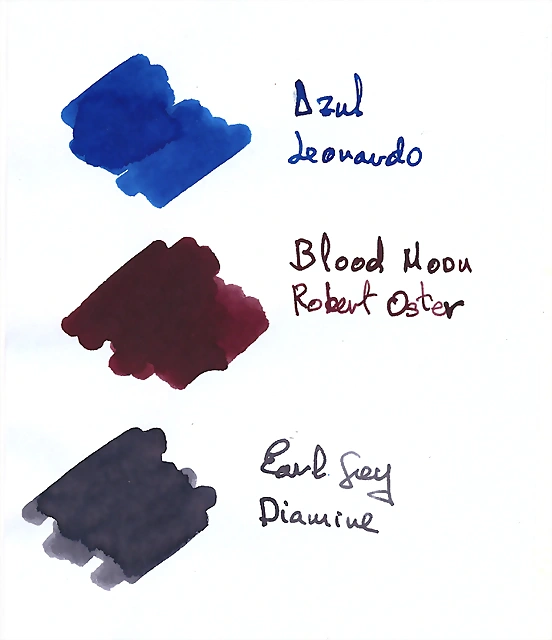 Azul
Leonardo
Blood Moon
Robert Oster
Earl Grey
Diamine